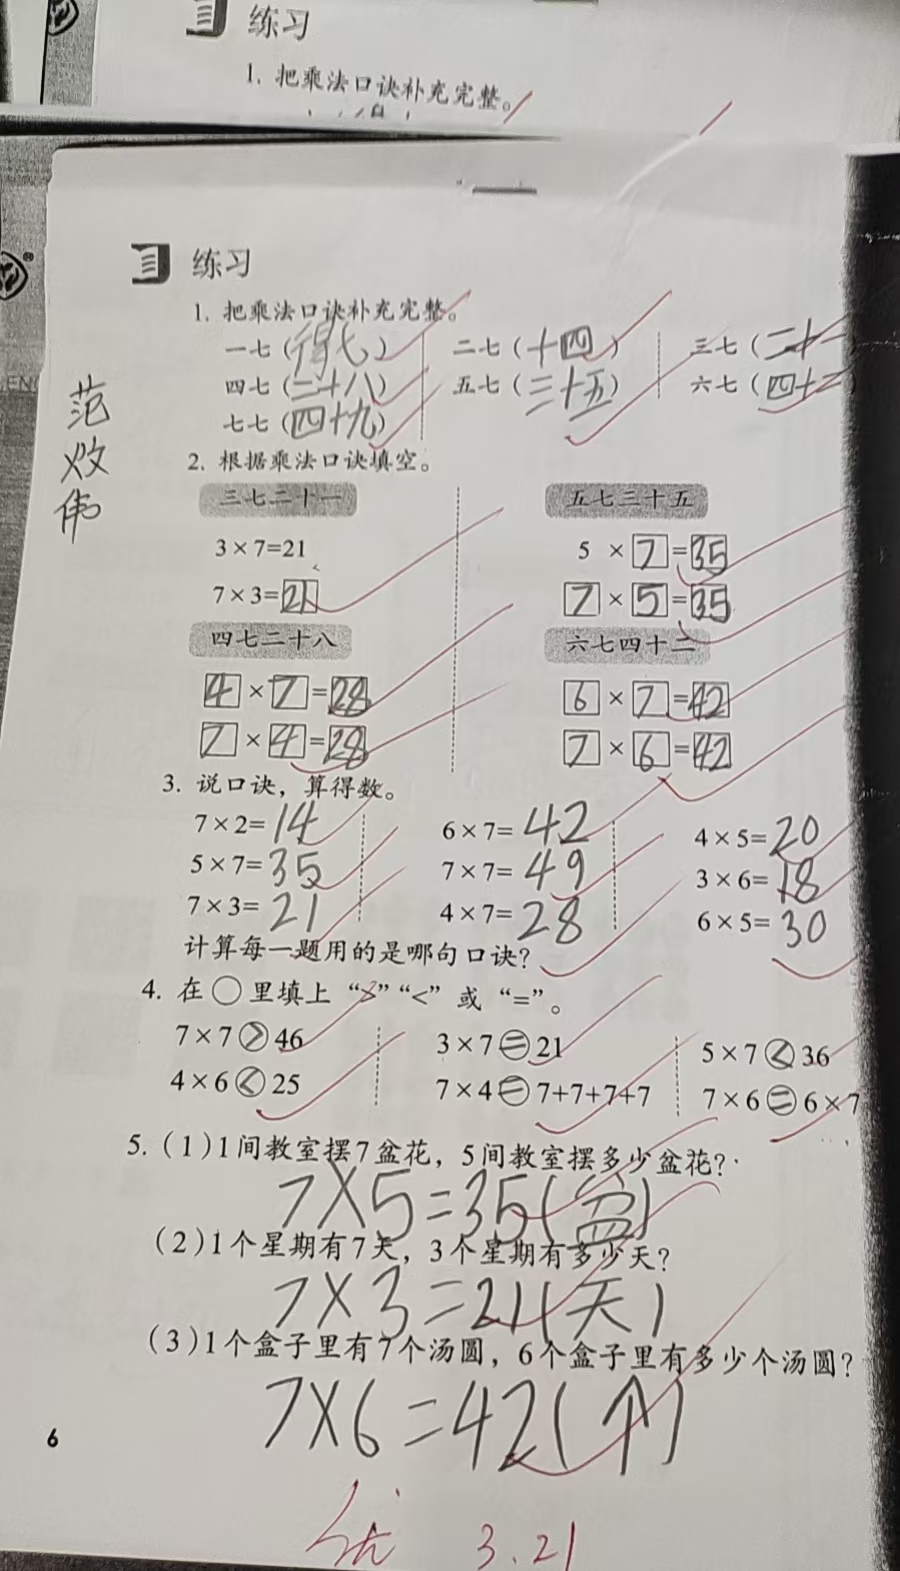 练习
1. 把乘法口诀补充完整。
练习
1. 把乘法口诀补充完整。
一七（得七） 二七（十四） 三七（二十一
四七（二十八） 五七（三十五） 六七（四十二
七七（四十九）
2. 根据乘法口诀填空。
三七二十一 五七三十五
3×7=21 5×7=35
7×3=21 7×5=35
四七二十八 六七四十二
4×7=28 6×7=42
7×4=28 7×6=42
3. 说口诀，算得数。
7×2=14 6×7=42 4×5=20
5×7=35 7×7=49 3×6=18
7×3=21 4×7=28 6×5=30
计算每一题用的是哪句口诀？
4. 在○里填上“>”“<”或“=”。
7×7>46 3×7=21 5×7<36
4×6<25 7×4=7+7+7+7 7×6=6×7
5.（1）1间教室摆7盆花，5间教室摆多少盆花？
7×5=35（盆）
（2）1个星期有7天，3个星期有多少天？
7×3=21（天）
（3）1个盒子里有7个汤圆，6个盒子里有多少个汤圆？
7×6=42（个）
6
优 3.21